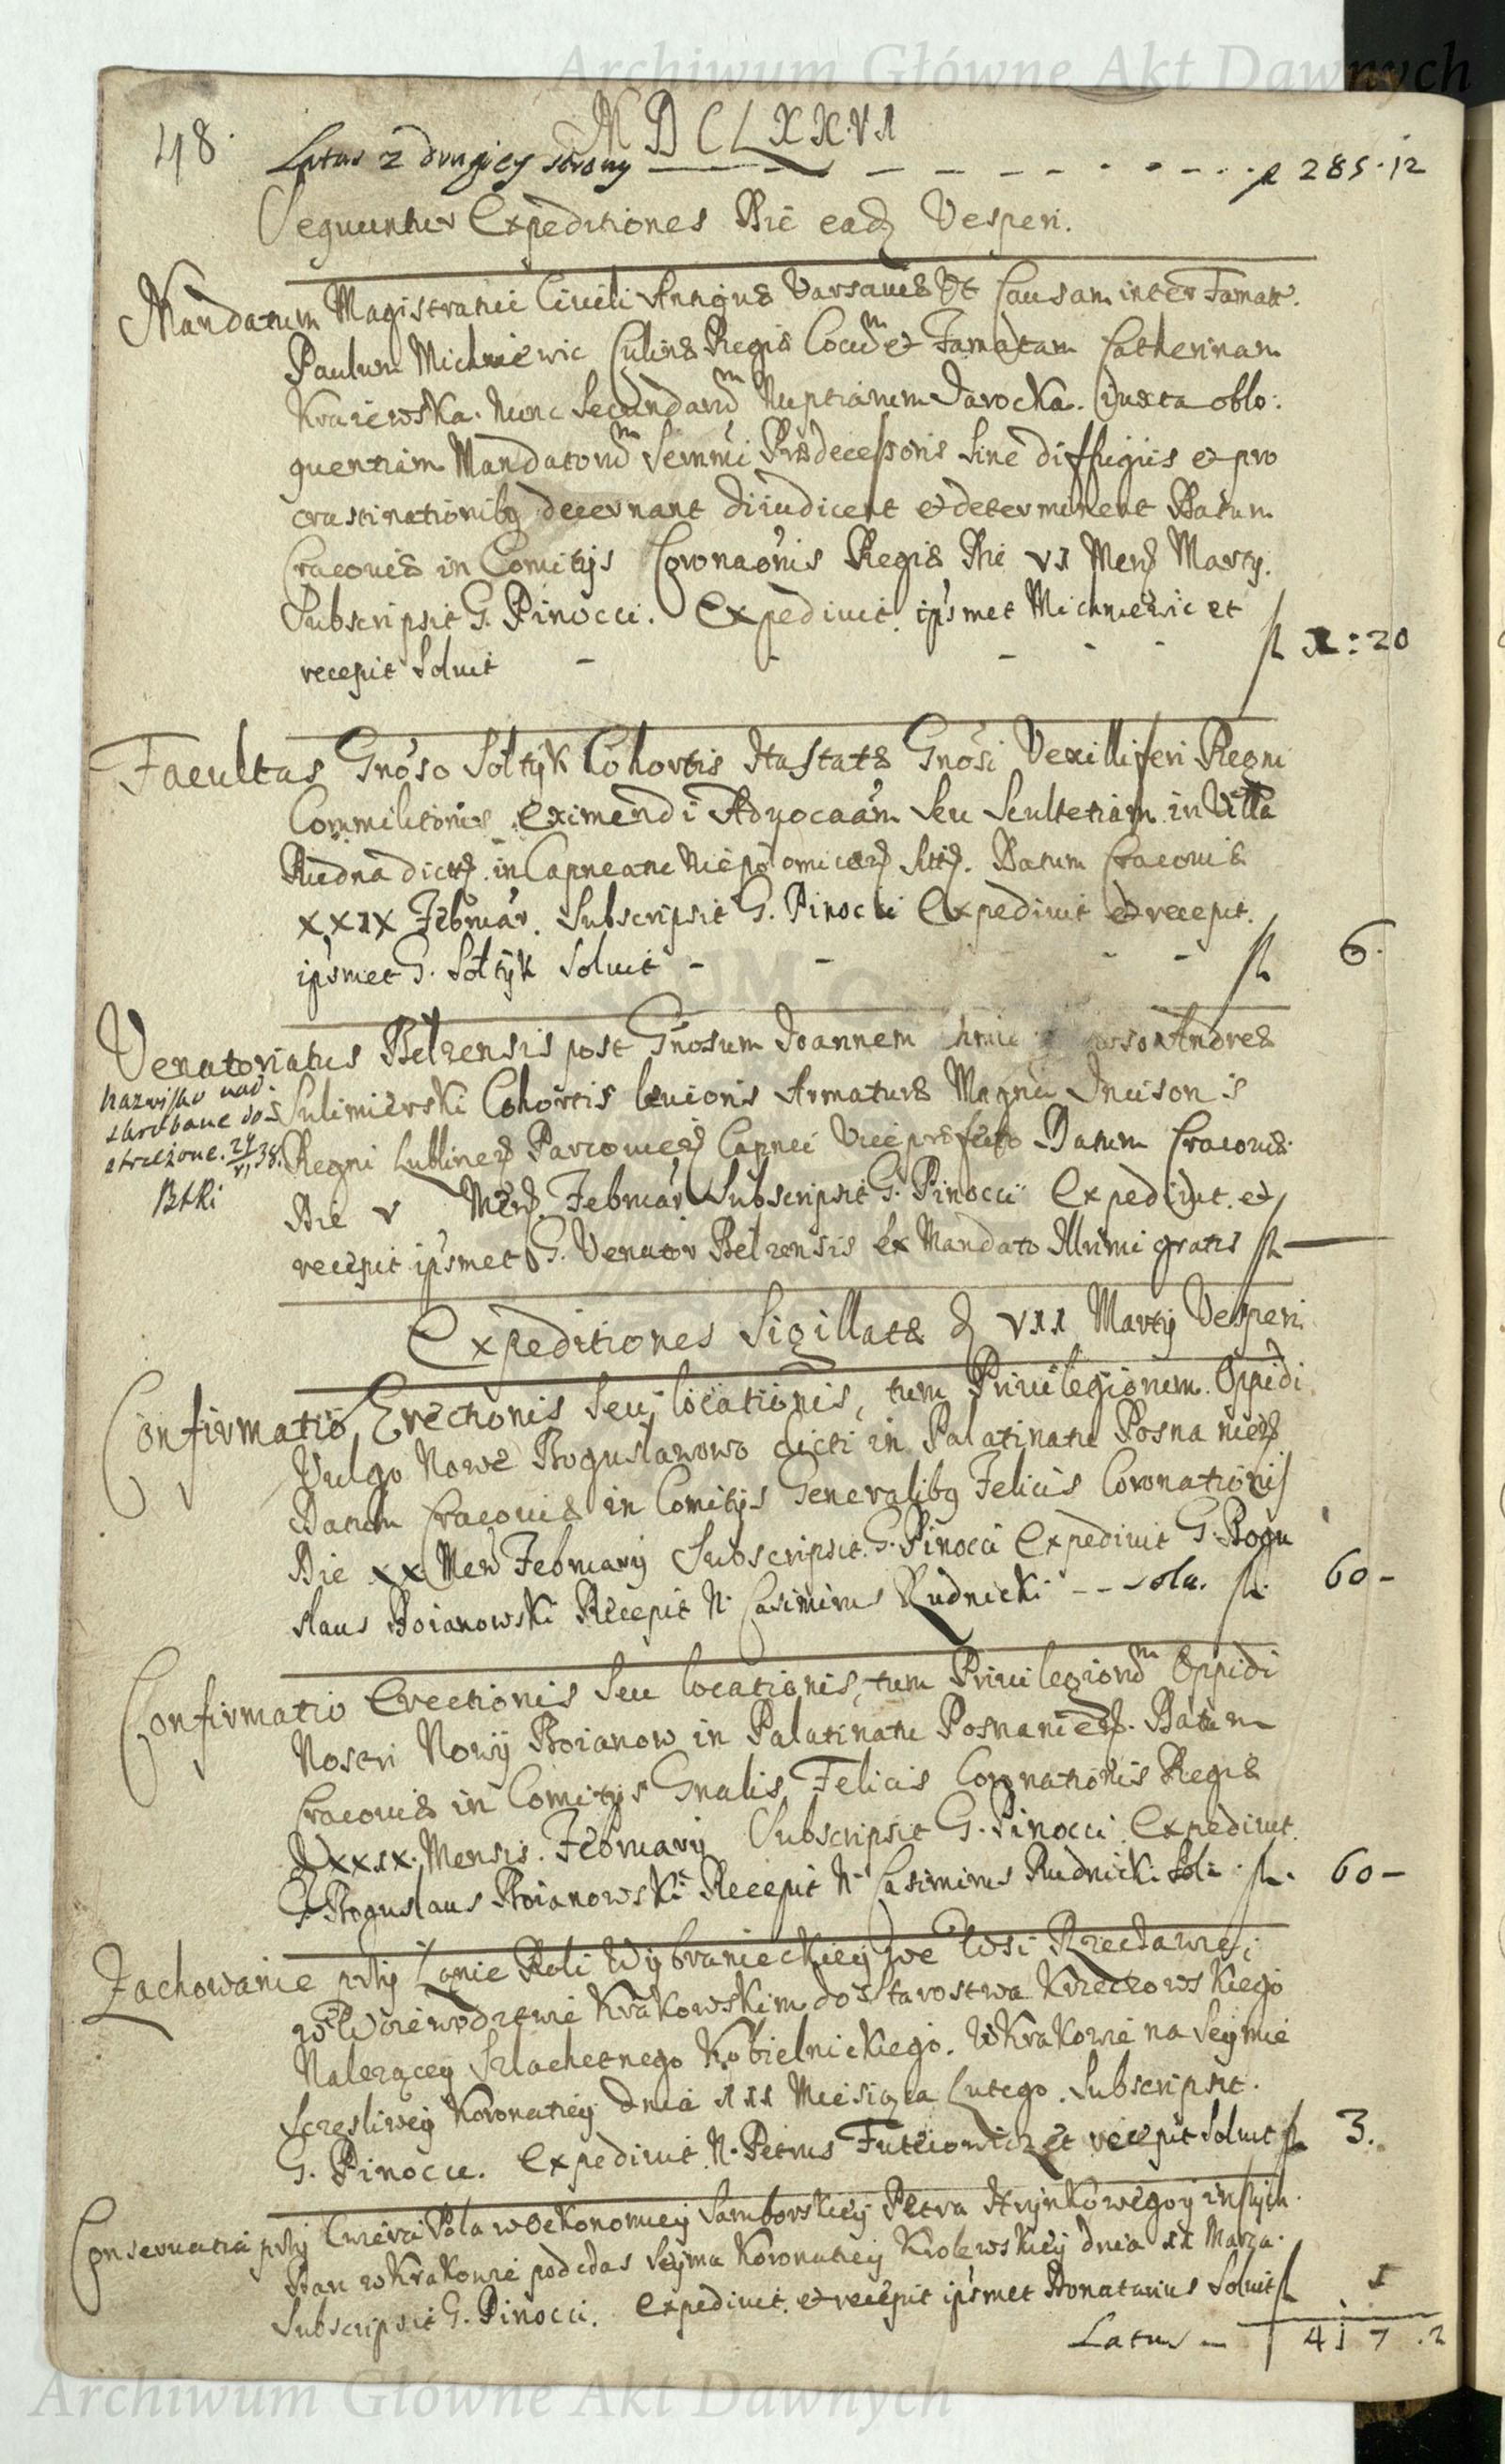 Archiwum Główne Akt Dawnych
48.
MDCLXXVI
Latus z drugiey strony — — — — — — — fl 285.12
Sequuntur Expeditiones Die eadem Vesperi.
Mandatum Magistratui Ciuili Antiquæ Varsauiæ Vt Causam inter Famatt.
Paulum Michniewic Culinæ Regiæ Cocum et Famatam Catherinam
Kraiewska. Nunc Secundarum Nuptiarum Jarocka. iuxta oblo:
quentiam Mandatorum Serenmi Prædecessoris Sine diffugiis et pro
crastinationibq decernant diiudicent et determinent Datum
Cracouiæ in Comitijs Coronaonis Regiæ Die VI Mens Martij.
Subscripsit G. Pinocci. Expediuit ipsmet Michniewic et
recepit Soluit - - - - - fl 1:20
Facultas Gnoso Sołtyk Cohortis Hastatæ Gnosi Vexilliferi Regni
Commilitonis eximendi Aduocaam Seu Scultetiam in Villa
Rudna dicta in Capneatu Niepolomicen sitta. Datum Cracouiæ
XXIX Februar. Subscripsit G. Pinocci Expediuit et recepit.
ipsmet G. Sołtyk Soluit - - - - fl 6.
Venatoriatus Belzensis post Gnosum Joannem Andreæ
Sulimierski Cohortis leuioris Armaturæ Magni Incisoris
Regni Lublinen Parcouien Capnei Viceprefecto Datum Cracouiæ
Die V Mens Februar Subscripsit G. Pinocci Expediuit et
recepit ipsmet G. Venator Belzensis ex Mandato Illrimi gratis fl —
nazwisko nad
skrobane do-
strzeżone. 24/VI 38.
Expeditiones Sigillatæ d VII Martij Vesperi
Confirmatio Erectionis Seu locationis, tum Priuilegiorum Oppidi
Vulgo Nowe Bogusławowo dicti in Palatinatu Posnanien
Datum Cracouiæ in Comitijs Generalibq Felicis Coronationis
Die XX Mens Februarij Subscripsit G. Pinocci Expediuit G. Bogu
slaus Boianowski Recepit N. Casimirus Rudnicki - - Solu. fl. 60 -
Confirmatio Erectionis Seu locationis, tum Priuilegiorum Oppidi
Nostri Nowy Boianow in Palatinatu Posnanien. Datum
Cracouiæ in Comitijs Gnalis Felicis Coronationis Regiæ
D XXIX. Mensis. Februarij Subscripsit G. Pinocci Expediuit
G. Boguslaus Boianowski Recepit N. Casimirus Rudnicki Sol: fl. 60 -
Zachowanie przy Łanie Roli Wybranieckiey we Wsi Rzecławie
w Woiewodztwie Krakowskim do Starostwa Krzeczowskiego
Nalezącey Szlachetnego Kobielnickiego. w Krakowie na Seymie
Szczesliwey Koronatiey dnia III Miesiąca Lutego. Subscripsit.
G. Pinocci. Expediuit N. Petrus Futeiowicz et recepit Soluit fl 3.
Conseruatia przy Cwierci Pola w Oekonomiey Samborskiey Petra Hrynkowego y inszych.
Dan w Krakowie podczas Seymu Koronatiey Krolewskiey dnia II Marza.
Subscripsit G. Pinocci. Expediuit et recepit ipsmet Donatarius Soluit fl 1
Latus - 417.2
Archiwum Główne Akt Dawnych